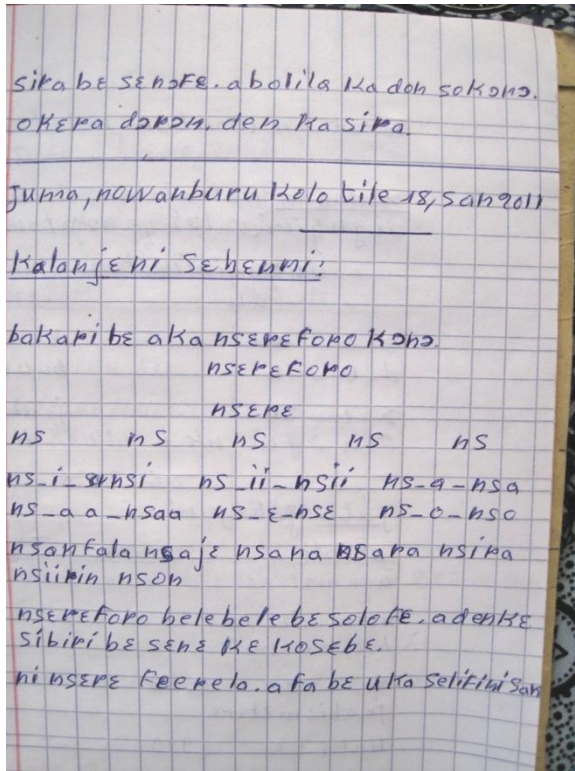 sira bɛ senɔfɛ. a bolila ka don sokɔnɔ.
o kera dɔrɔn. den ka sira.
Juma, nowanburu kolo tile 18, san 2011
Kalanjɛ ni sɛbɛnni:
bakari bɛ aka nsɛrɛforo kɔnɔ.
nsɛrɛforo
nsɛrɛ
ns ns ns ns ns
ns_i_nsi ns_ii_nsii ns_a_nsa
ns_aa_nsaa ns_ɛ_nsɛ ns_o_nso
nsanfala nsajɛ nsana nsara nsira
nsiirin nson
nsɛrɛforo belebele bɛ solofɛ. a denkɛ
sibiri bɛ sɛnɛ kɛ kosɛbɛ.
ni nsɛrɛ feerela. a fa bɛ u ka selifini san